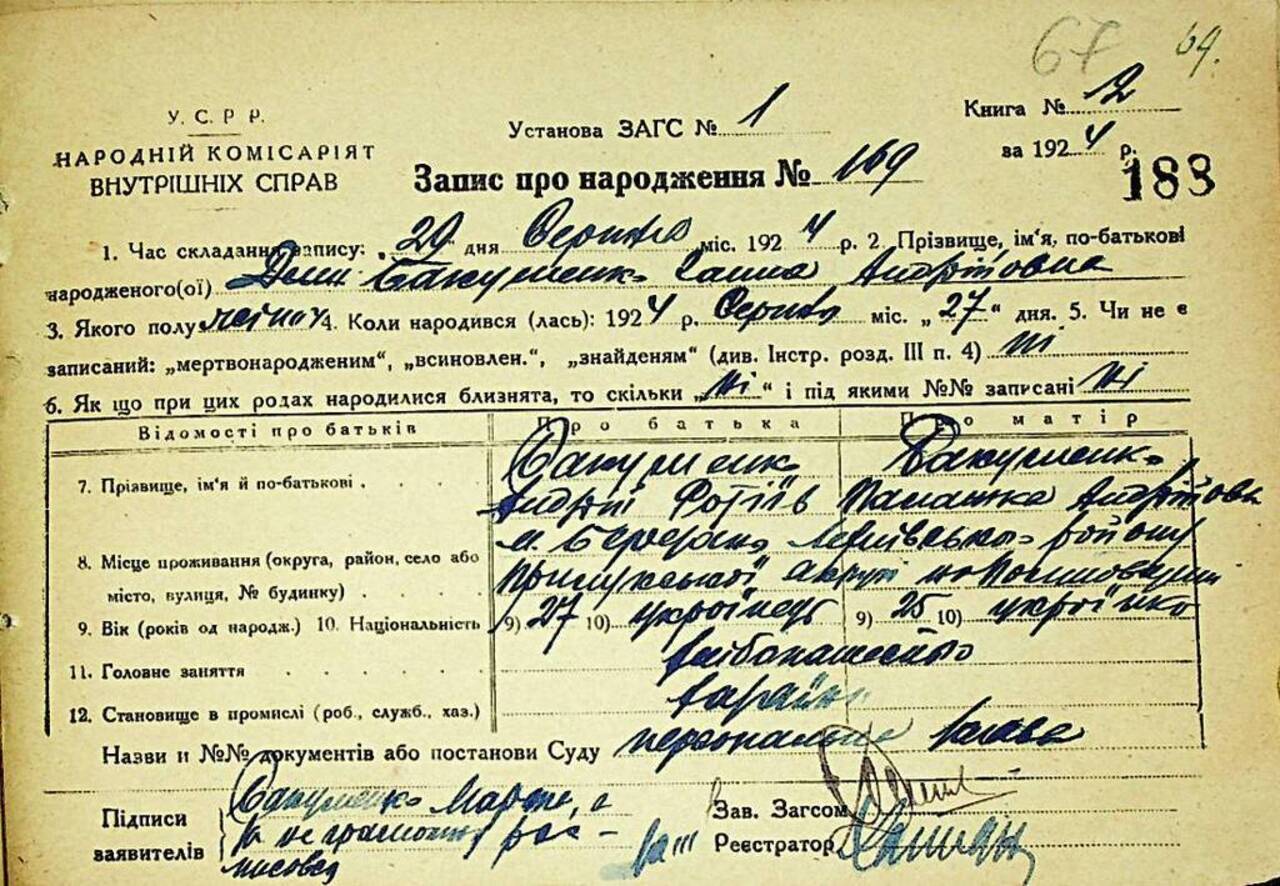 67 69.
У. С. Р. Р.
НАРОДНІЙ КОМІСАРІЯТ
ВНУТРІШНІХ СПРАВ
Установа ЗАГС № 1
Книга № 2
за 1924 р.
188
Запис про народження № 169
1. Час складання запису: „29“ дня Серпня міс. 1924 р. 2. Прізвище, ім'я, по-батькові
народженого(ої) Бакуменко Ганна Андріївна
3. Якого полу жіноч 4. Коли народився (лась): 1924 р. Серпня міс. „27“ дня. 5. Чи не є
записаний: „мертвонародженим“, „всиновлен.“, „знайденям“ (див. Інстр. розд. III п. 4) ні
6. Як що при цих родах народилися близнята, то скільки „ні“ і під якими №№ записані ні
Відомості про батьків Про батька Про матір
7. Прізвище, ім'я й по-батькові Бакуменко Бакуменко
Андрій Фотіїв Андріївна
8. Місце проживання (округа, район, село або м. району
місто, вулиця, № будинку) Прилуцької округи
9. Вік (років од народж.) 10. Національність 9) 27 10) українець 9) 25 10) українка
11. Головне заняття хліборобство
12. Становище в промислі (роб., служб., хаз.)
Назви и №№ документів або постанови Суду персональна заява
Підписи
заявителів
Бакуменко а
за не грамотн рос-
писовся
Зав. Загсом
Реєстратор